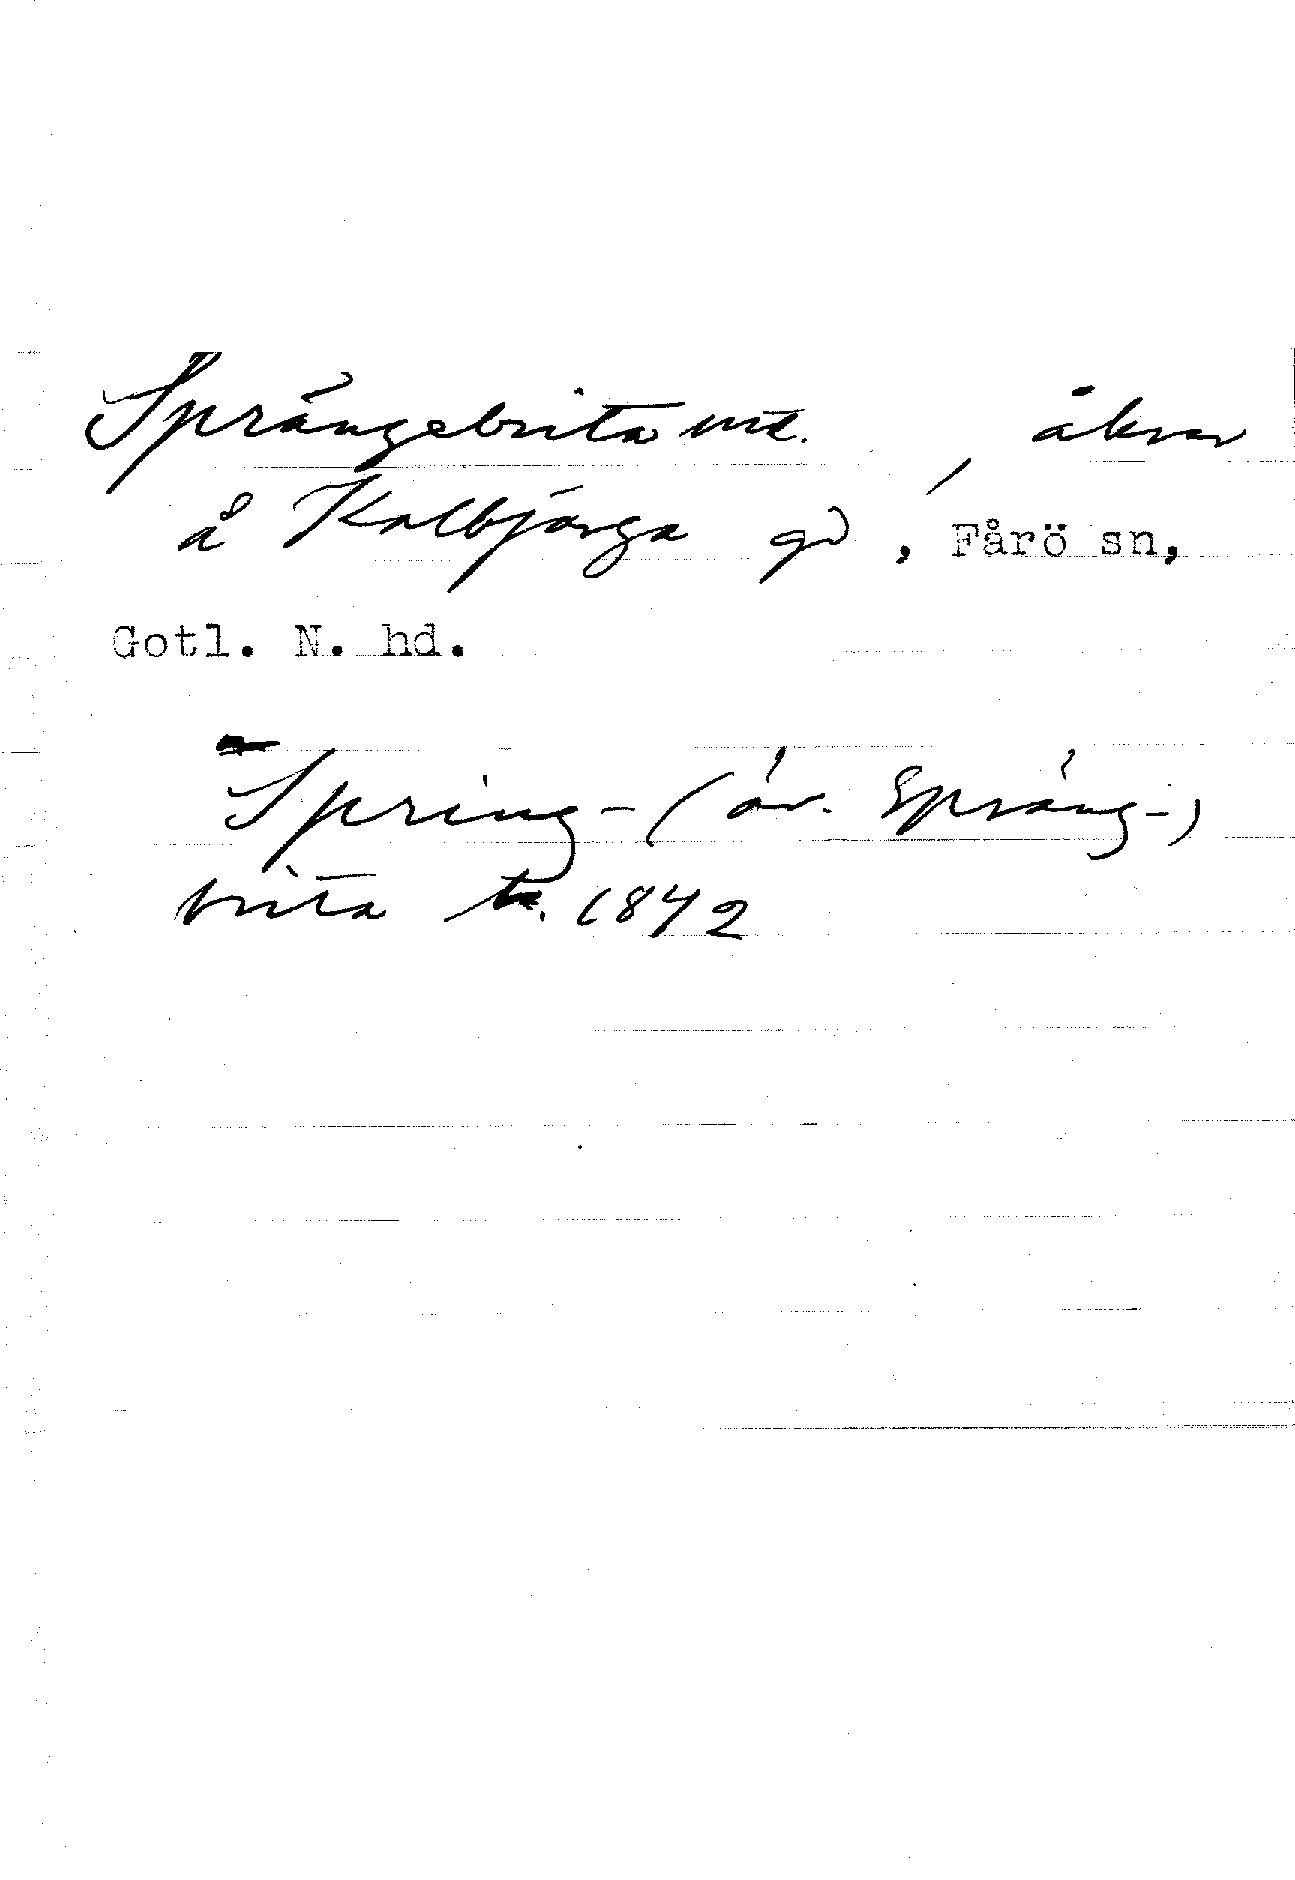 Sprängebrita , åkrar
å Kalbjärga gd , Fårö sn,
Gotl. N. hd.
Spring- (äv. Spräng-)
brita 1842